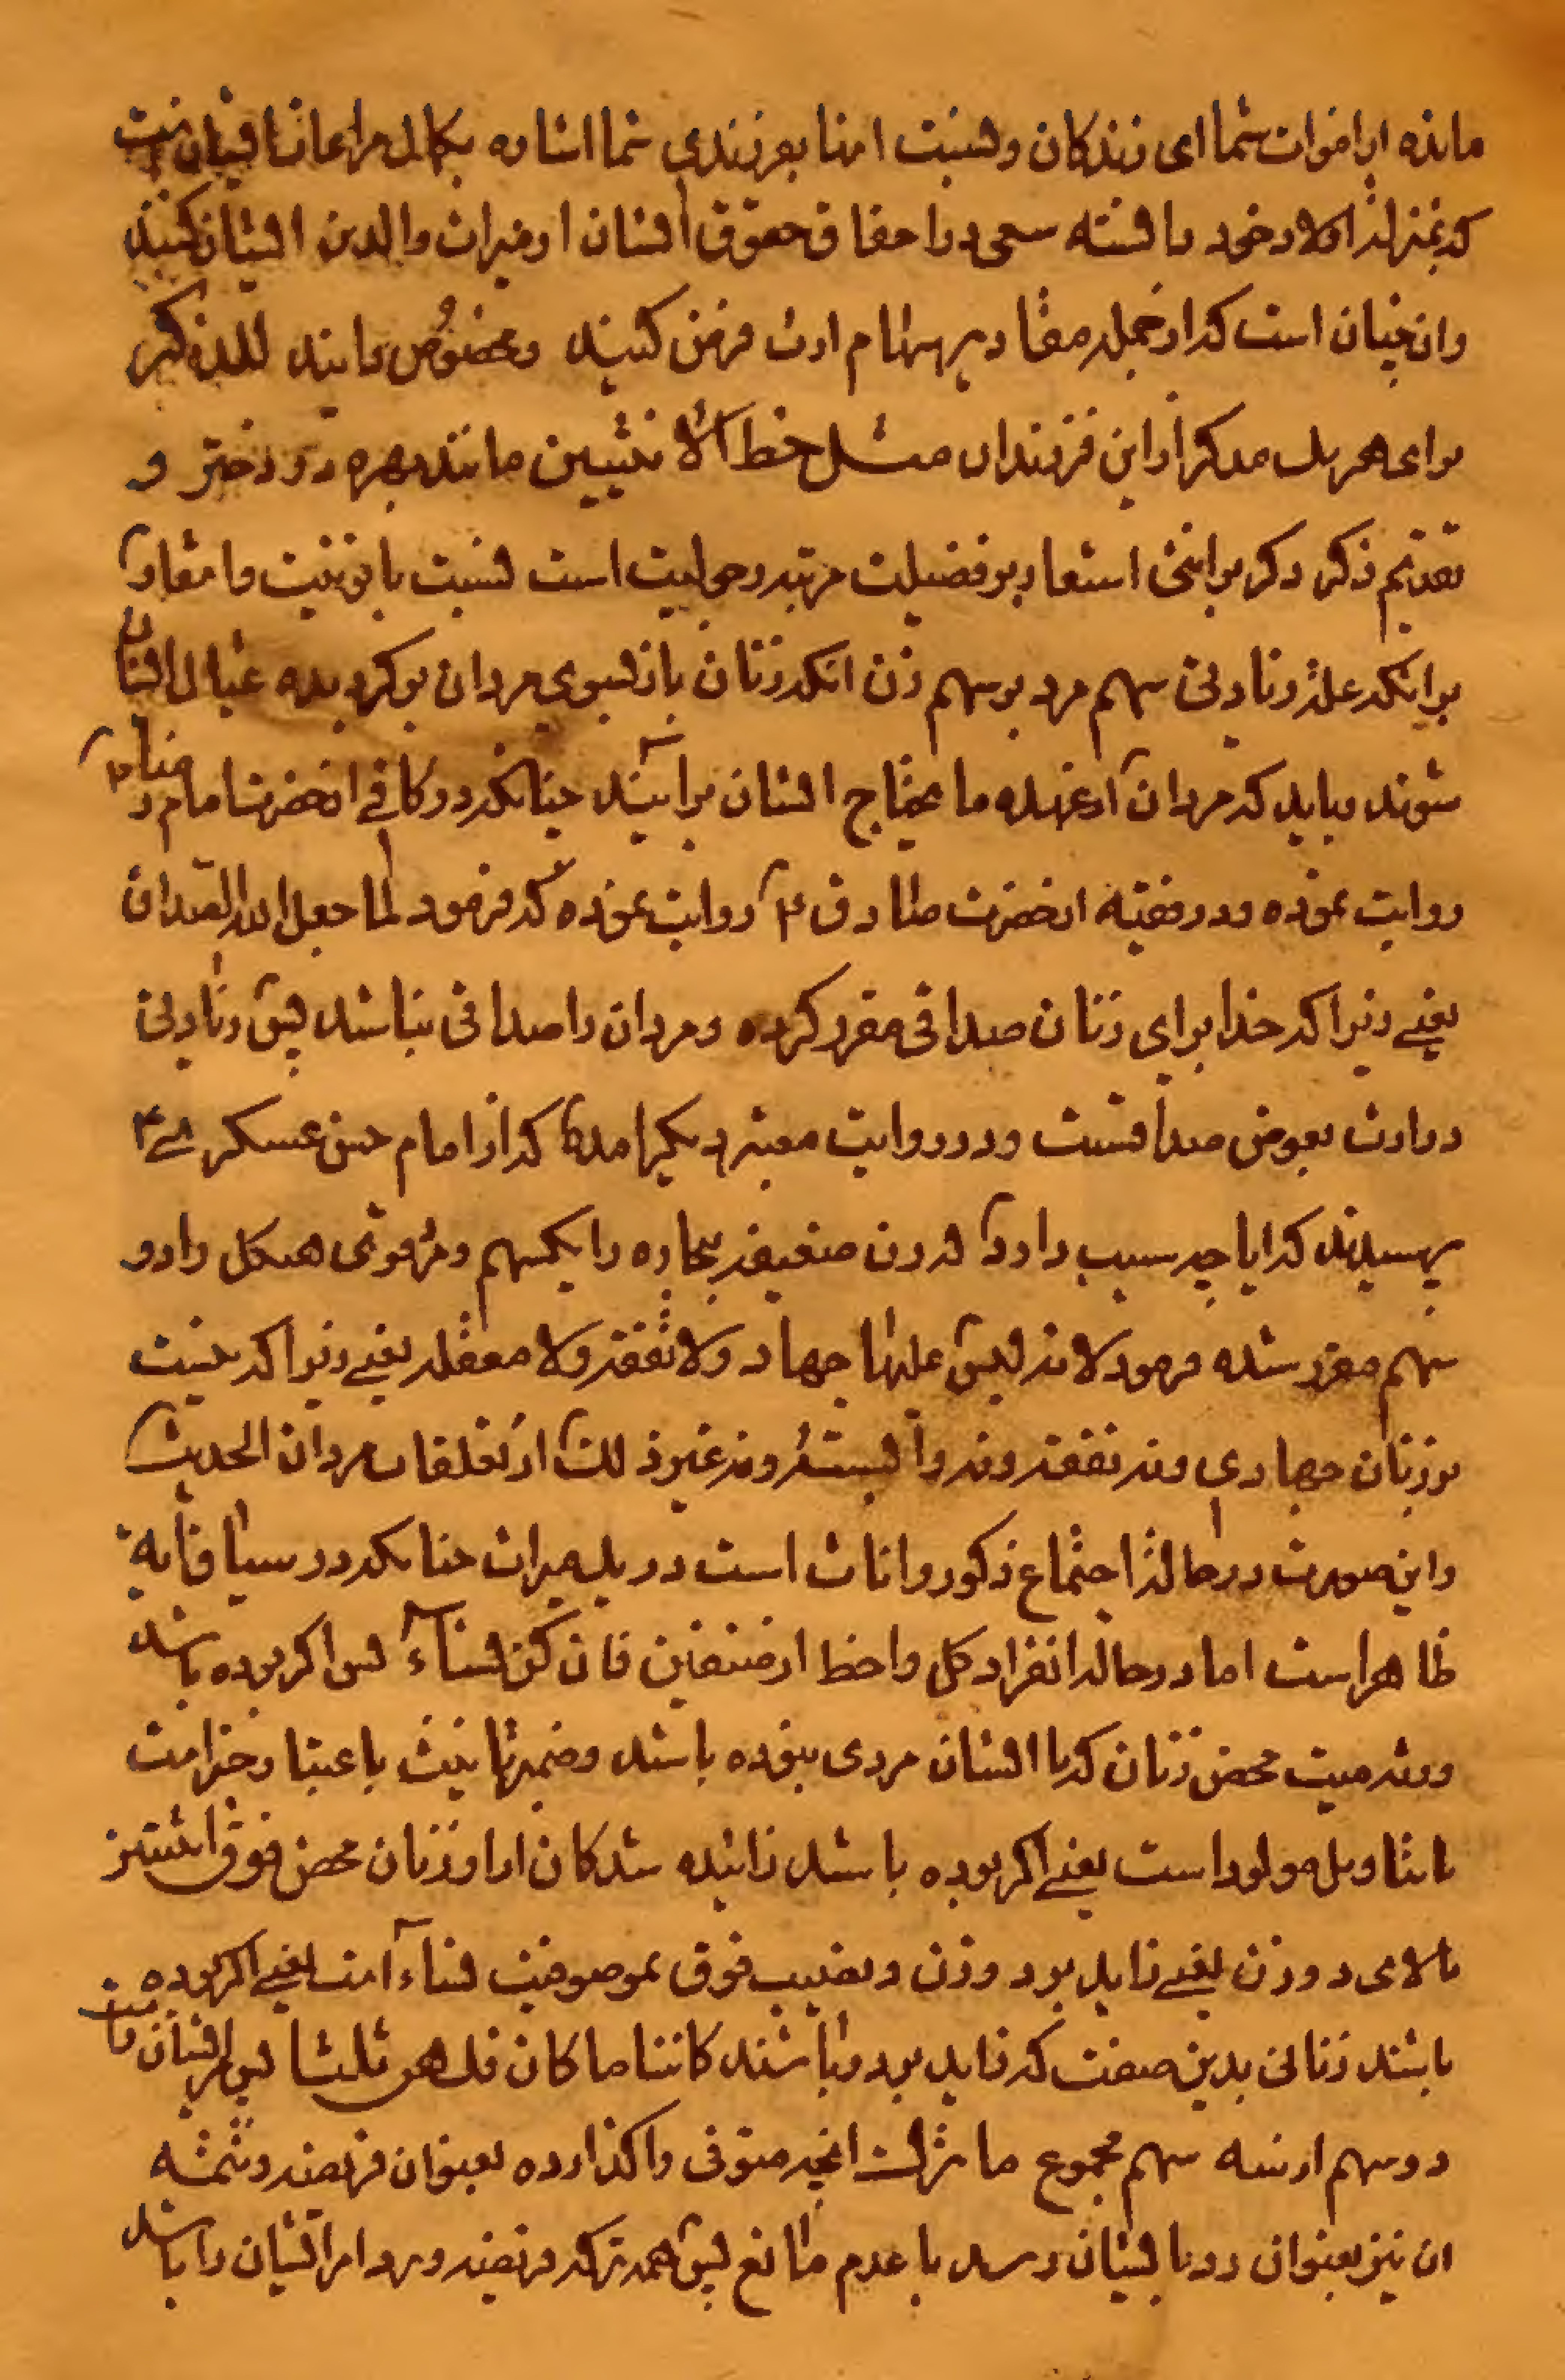 مانده از اموات شما ای زندکان و نسبت ابنا بفرزندی شما اشاره بکمال مراعات ایشان است
که بمنزلهٔ اولاد خود دانسته سعی در احقاق حقوق ایشان از میراث والدین ایشان کنید
و آن چنان است که از جمله مقادیر سهام ارث فرض کنید و مخصوص دانید للذکر
برای هر یک مذکر از این فرزندان مثل حظ الانثیین مانند بهره دو دختر و
تقدیم ذکر ذکر بر انثی اشعار بر فضیلت مرتبه رجولیت است نسبت بانوثیت و اما
بر اینکه علة زیادتی سهم مرد بر سهم زن آنکه زنان باز بسوی مردان بر کردیده عیال ایشان
شوند و باید که مردان از عهده ما یحتاج ایشان برآیند چنانکه در کافی از حضرت امام رضا ۴
روایت نموده و در فقیه از حضرت صادق ۴ روایت نموده که فرمود لما جعل الله لها الصداق
یعنی زیرا که خدا برای زنان صداقی مقرر کرده و مردان را صداقی نباشد پس زیادتی
در ارث بعوض صداقست و در روایت معتبر دیکر آمده که از امام حسن عسکری ۴
پرسیدند که آیا چه سبب دارد که زن ضعیفه بیچاره را یکسهم و مرد قوی هیکل را دو
سهم مقرر شده فرمود لانه لیس علیها جهاد ولا نفقة ولا معقلة یعنی زیرا که نیست
بر زنان جهادی و نه نفقه و نه وابسته و نه غیر ذلک از تعلقات مردان الحدیث
و این صورت در حالة اجتماع ذکور و اناث است در یک میراث چنانکه در سیاق آیه
ظاهر است اما در حالة انفراد کل واحد از صنفین فان کن نساء پس اکر بوده باشد
ورثه میت محض زنان که با ایشان مردی نبوده باشد و ضمیر تانیث باعتبار خبر است
یا بتاویل مولود است یعنی اکر بوده باشد زائیده شدکان از او زنان محض فوق اثنتین
بالای دو زن یعنی زاید بر دو زن و نصب فوق بموصوفیت نساء است یعنی اکر بوده
باشند زنانی بدین صفت که زاید بر دو باشند کائنا ما کان فلهن ثلثا پس ایشان راست
دو سهم از سه سهم مجموع ما ترک آنچه متوفی واکذارده بعنوان فریضه و تتمه
آن نیز بعنوان رد بایشان رسد با عدم مانع پس همه ترکه فریضه و رد ایشان را باشد